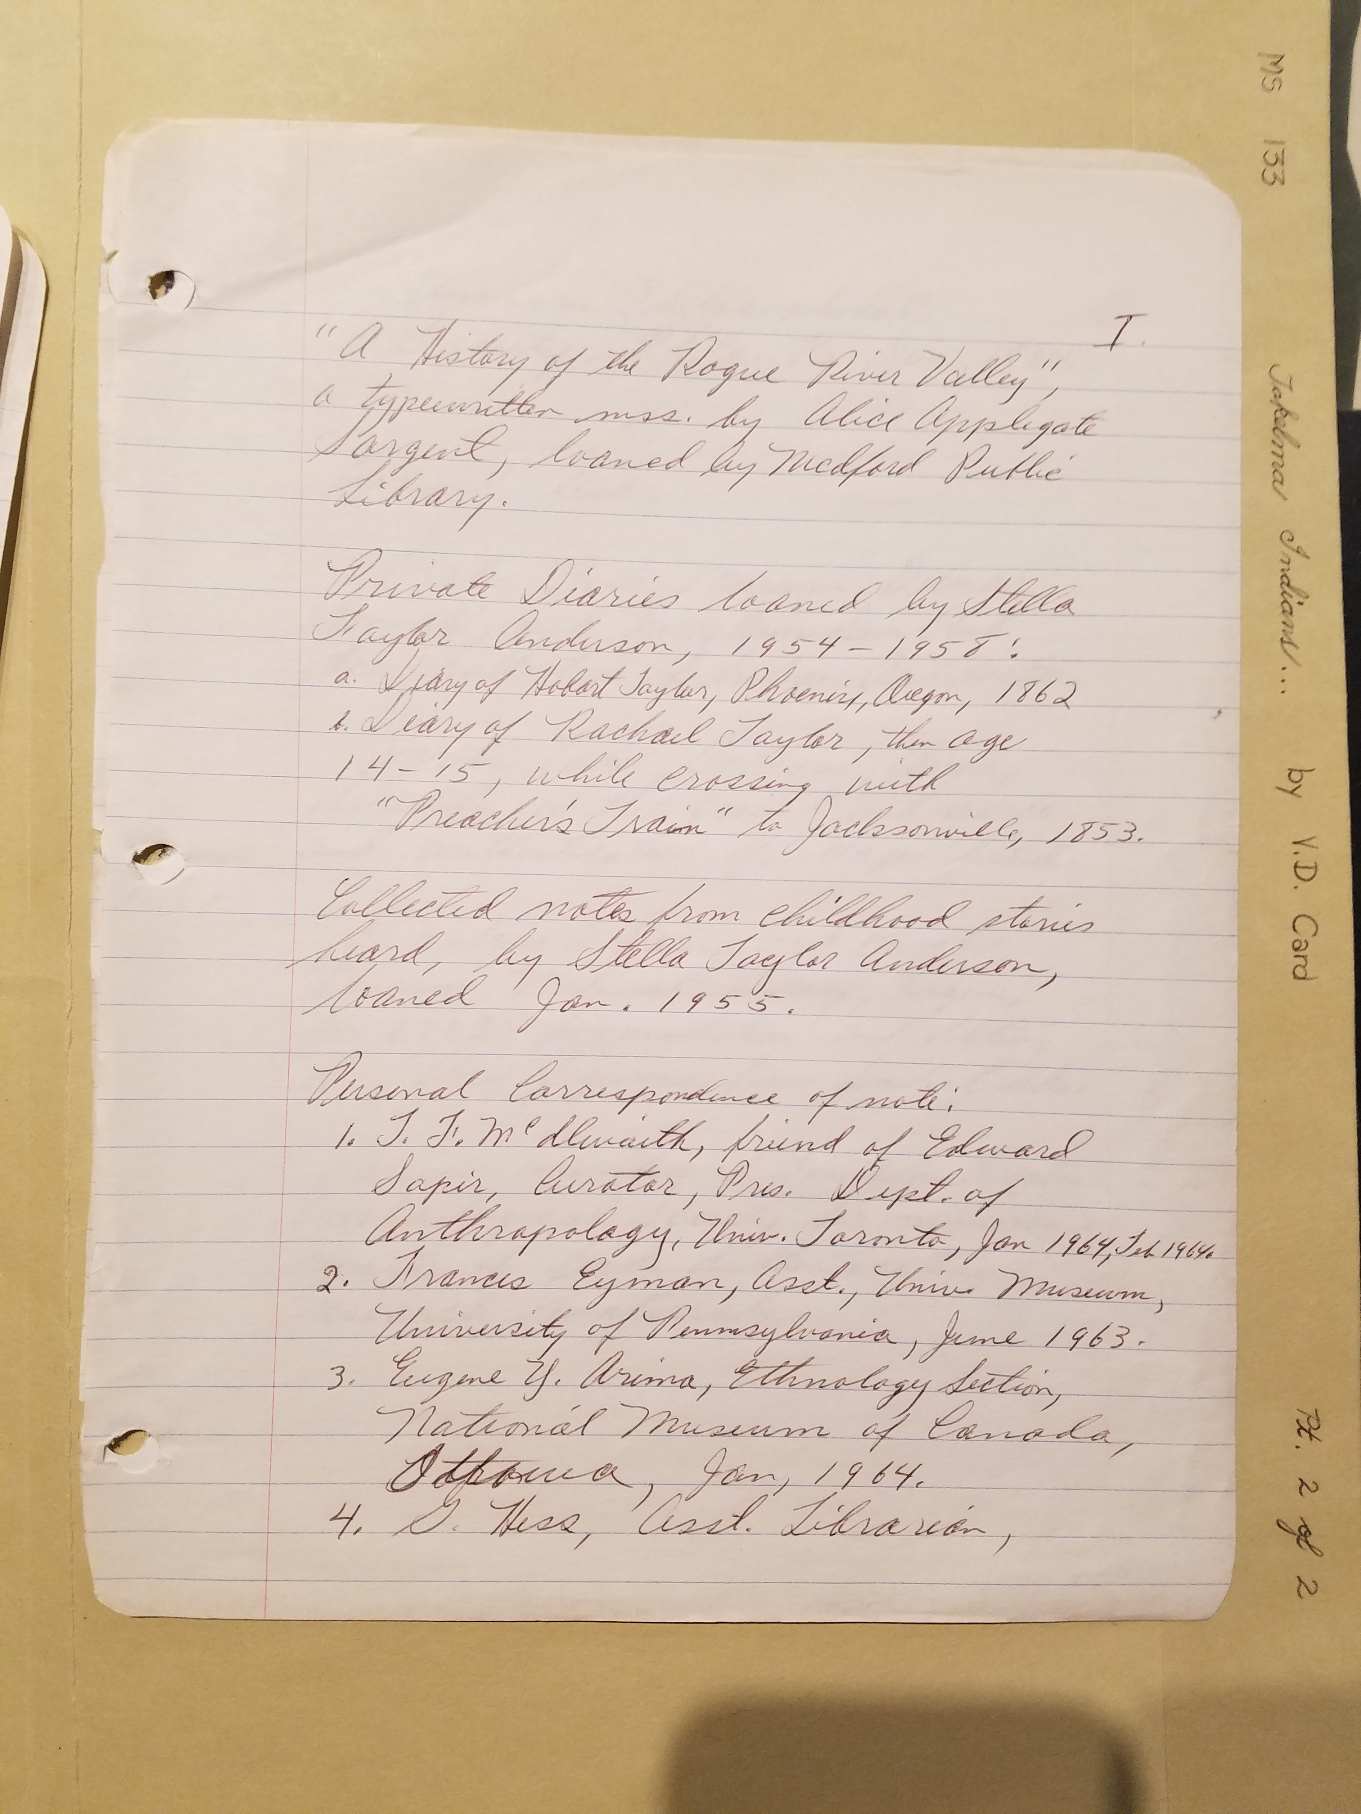 I.
"A History of the Rogue River Valley",
a typewritten mss. by Alice Applegate
Sargent, loaned by Medford Public
Library.
Private Diaries loaned by Stella
Taylor Anderson, 1954-1958:
a. Diary of Hobart Taylor, Phoenix, Oregon, 1862
b. Diary of Rachael Taylor, then age
14-15, while crossing with
"Preacher's Train" to Jacksonville, 1853.
Collected notes from childhood stories
heard, by Stella Taylor Anderson,
loaned Jan. 1955.
Personal Correspondence of note:
1. T. F. McIlwraith, friend of Edward
Sapir, Curator, Pres. Dept. of
Anthropology, Univ. Toronto, Jan 1964, Feb 1964.
2. Francis Eyman, Asst., Univ. Museum,
University of Pennsylvania, June 1963.
3. Eugene Y. Arima, Ethnology Section,
National Museum of Canada,
Ottawa, Jan, 1964.
4. Hess, Asst. Librarian,
MS 133 Takelma Indians... by V.D. Card Pt. 2 of 2